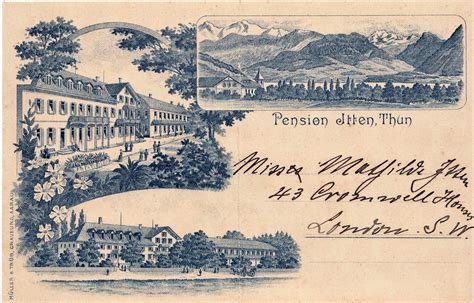 Pension Itten, Thun
Misses Mathilde Itten
43 Cromwell Houses
London. S. W
MÜLLER & TRÜB, GRAVEURS, AARAU